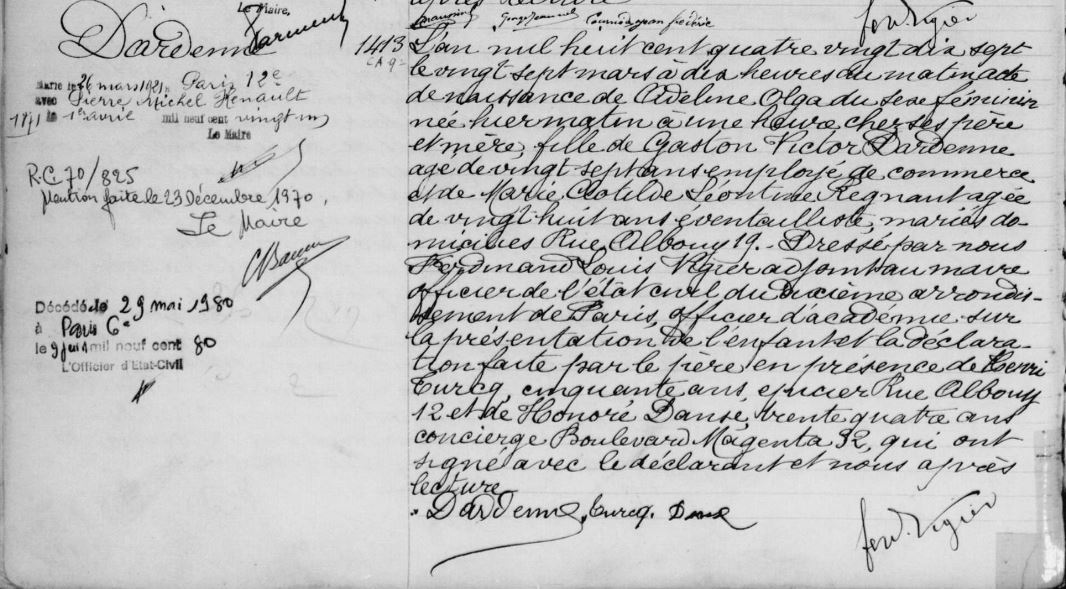 Le Maire,
Dardenne
1413
Marié le 26 mars 1921, Paris 12e
avec Pierre Michel Henault
le 1er avril mil neuf cent vingt un
Le Maire
R.C. 70/825
Mention faite le 23 Décembre 1970,
Le Maire
Décédé le 29 mai 1980
à Paris 6e
le 9 juin mil neuf cent 80
L'Officier d'Etat-Civil
L'an mil huit cent quatre vingt dix sept
le vingt sept mars à dix heures du matin acte
de naissance de Adeline Olga du sexe féminin
née hier matin à une heure, chez ses père
et mère, fille de Gaston Victor Dardenne
agé de vingt sept ans employé de commerce
et de Marie Clotilde Léontine Regnant agée
de vingt huit ans éventailliste, mariés do
miciliés Rue Albouy 19. - Dressé par nous
Ferdinand Louis Vigier adjoint au maire
officier de l'état civil du dixième arrondis-
sement de Paris, officier d'académie sur
la présentation de l'enfant et la déclara-
tion faite par le père en présence de Henri
Turcq, cinquante ans, épicier Rue Albouy
12 et de Honoré Danse, trente quatre ans
concierge Boulevard Magenta 32, qui ont
signé avec le déclarant et nous après
lecture
Dardenne, Turcq. Danse
ferd. Vigier